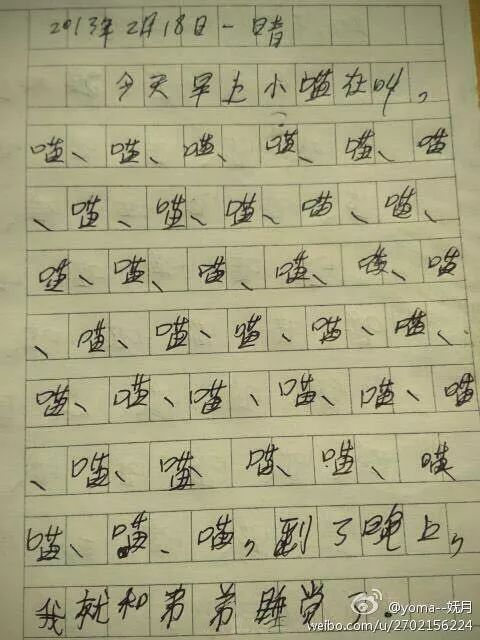 2013年2月18日一晴
今天早上小喵在叫，
喵、喵、喵、喵、喵、喵
、喵、喵、喵、喵、喵、
喵、喵、喵、喵、喵、喵
、喵、喵、喵、喵、喵、
喵、喵、喵、喵、喵、喵
、喵、喵、喵、喵、喵
喵、喵、喵，到了晚上，
我就和弟弟睡觉了.
@yoma--妩月
weibo.com/u/2702156224